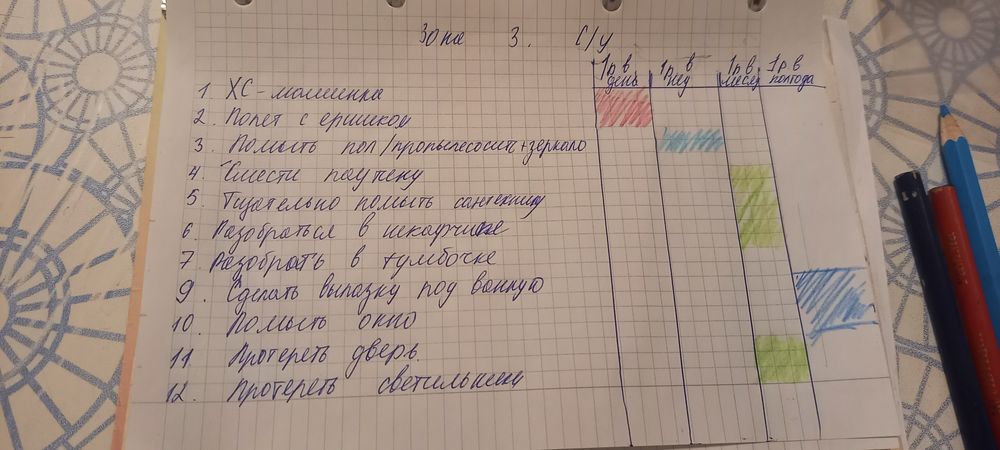 Зона 3. С/У
1р в день 1р в нед 1р в месяц 1р в полгода
1. ХС-машинка
2. Полет с ершиком
3. Помыть пол/пропылесосить+зеркало
4. Смести паутину
5. Тщательно помыть сантехнику
6. Разобраться в шкафчике
7. Разобрать в тумбочке
9. Сделать вылазку под ванную
10. Помыть окно
11. Протереть дверь.
12. Протереть светильники